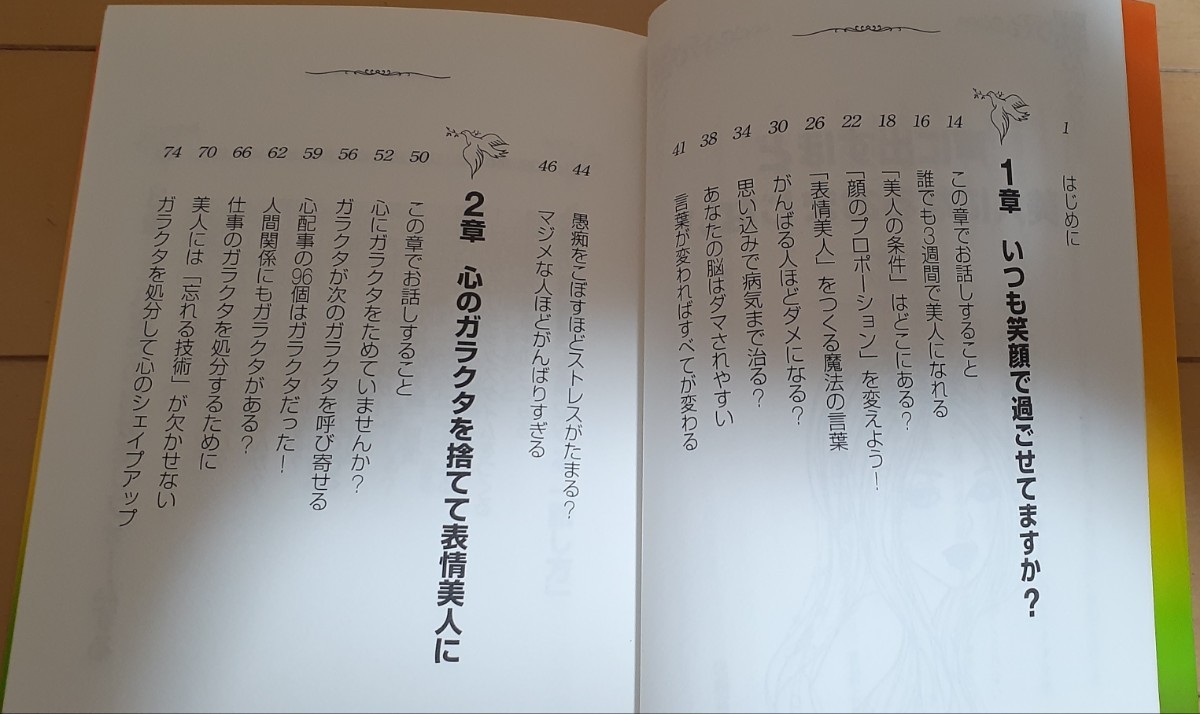 1 はじめに
1章 いつも笑顔で過ごせてますか?
14 この章でお話しすること
16 誰でも3週間で美人になれる
18 「美人の条件」はどこにある?
22 「顔のプロポーション」を変えよう!
26 「表情美人」をつくる魔法の言葉
30 がんばる人ほどダメになる?
34 思い込みで病気まで治る?
38 あなたの脳はダマされやすい
41 言葉が変わればすべてが変わる
44 愚痴をこぼすほどストレスがたまる?
46 マジメな人ほどがんばりすぎる
2章 心のガラクタを捨てて表情美人に
50 この章でお話しすること
52 心にガラクタをためていませんか?
56 ガラクタが次のガラクタを呼び寄せる
59 心配事の96個はガラクタだった!
62 人間関係にもガラクタがある?
66 仕事のガラクタを処分するために
70 美人には「忘れる技術」が欠かせない
74 ガラクタを処分して心のシェイプアップ